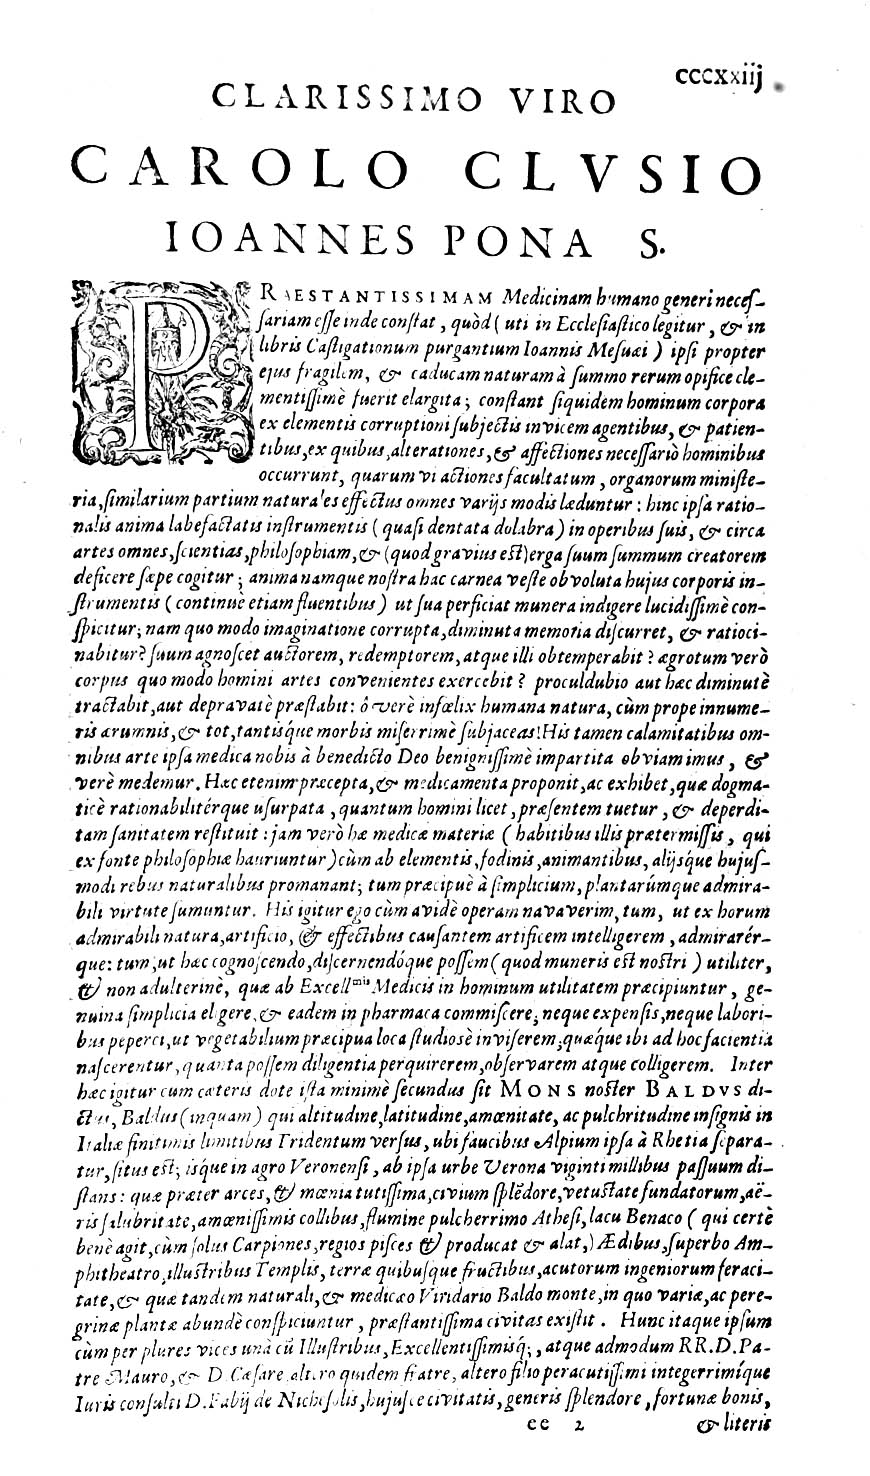 cccxxiij
CLARISSIMO VIRO
CAROLO CLVSIO
IOANNES PONA S.
PRAESTANTISSIMAM Medicinam humano generi necеſ-
ſariam eſſe inde conſtat, quòd (uti in Eccleſiaſtico legitur, & in
libris Caſtigationum purgantium Ioannis Meſuæi) ipſi propter
ejus fragilem, & caducam naturam à ſummo rerum opifice cle-
mentiſſimè fuerit elargita; conſtant ſiquidem hominum corpora
ex elementis corruptioni ſubjectis invicem agentibus, & patien-
tibus, ex quibus, alterationes, & affectiones neceſſariò hominibus
occurrunt, quarum vi actiones facultatum, organorum miniſte-
ria, ſimilarium partium naturales effectus omnes varijs modis læduntur: hinc ipſa ratio-
nalis anima labefactatis inſtrumentis (quaſi dentata dolabra) in operibus ſuis, & circa
artes omnes, ſcientias, philoſophiam, & (quod gravius eſt) erga ſuum ſummum creatorem
deficere ſæpe cogitur; anima namque noſtra hac carnea veſte obvoluta hujus corporis in-
ſtrumentis (continuè etiam fluentibus) ut ſua perficiat munera indigere lucidiſſimè con-
ſpicitur; nam quo modo imaginatione corrupta, diminuta memoria diſcurret, & ratioci-
nabitur? ſuum agnoſcet auctorem, redemptorem, atque illi obtemperabit? ægrotum verò
corpus quo modo homini artes convenientes exercebit? proculdubio aut hæc diminutè
tractabit, aut depravatè præſtabit: ô verè infœlix humana natura, cùm prope innume-
ris ærumnis, & tot, tantiſque morbis miſerrimè ſubjaceas! His tamen calamitatibus om-
nibus arte ipſa medica nobis à benedicto Deo benigniſſimè impartita obviam imus, &
verè medemur. Hæc etenim præcepta, & medicamenta proponit, ac exhibet, quæ dogma-
ticè rationabilitérque uſurpata, quantum homini licet, præſentem tuetur, & deperdi-
tam ſanitatem reſtituit: jam verò hæ medicæ materiæ (habitibus illis prætermiſſis, qui
ex fonte philoſophiæ hauriuntur) cùm ab elementis, fodinis, animantibus, alijſque hujuſ-
modi rebus naturalibus promanant; tum præcipuè à ſimplicium, plantarúmque admira-
bili virtute ſumuntur. His igitur ego cùm avidè operam navaverim, tum, ut ex horum
admirabili natura, artificio, & effectibus cauſantem artificem intelligerem, admirarér-
que: tum, ut hæc cognoſcendo, diſcernendóque poſſem (quod muneris eſt noſtri) utiliter,
& non adulterinè, quæ ab Excellmis Medicis in hominum utilitatem præcipiuntur, ge-
nuina ſimplicia eligere, & eadem in pharmaca commiſcere; neque expenſis, neque labori-
bus peperci, ut vegetabilium præcipua loca ſtudiosè inviſerem; quæque ibi ad hoc facientia
naſcerentur, quanta poſſem diligentia perquirerem, obſervarem atque colligerem. Inter
hæc igitur cum cæteris dote iſta minimè ſecundus ſit MONS noſter BALDVS di-
ctus, Baldus (inquam) qui altitudine, latitudine, amœnitate, ac pulchritudine inſignis in
Italiæ finitimis limitibus Tridentum verſus, ubi faucibus Alpium ipſa à Rhetia ſepara-
tur, ſitus eſt; iſque in agro Veronenſi, ab ipſa urbe Verona viginti millibus paſſuum di-
ſtans: quæ præter arces, & mœnia tutiſſima, civium ſplẽdore, vetuſtate fundatorum, aë-
ris ſalubritate, amœniſſimis collibus, flumine pulcherrimo Atheſi, lacu Benaco (qui certè
benè agit, cùm ſolus Carpiones, regios piſces & producat & alat,) Ædibus, ſuperbo Am-
phitheatro, illuſtribus Templis, terræ quibuſque fructibus, acutorum ingeniorum feraci-
tate, & quæ tandem naturali, & medicæo Viridario Baldo monte, in quo variæ, ac pere-
grinæ plantæ abundè conſpiciuntur, præſtantiſſima civitas exiſtit. Hunc itaque ipſum
cùm per plures vices unà cũ Illuſtribus, Excellentiſſimiſq;, atque admodum RR. D. Pa-
tre Mauro, & D. Cæſare altero quidem fratre, altero filio peracutiſſimi integerrimíque
Iuris conſulti D. Fabij de Nicheſolis, hujuſce civitatis, generis ſplendore, fortunæ bonis,
ee 2 & literis